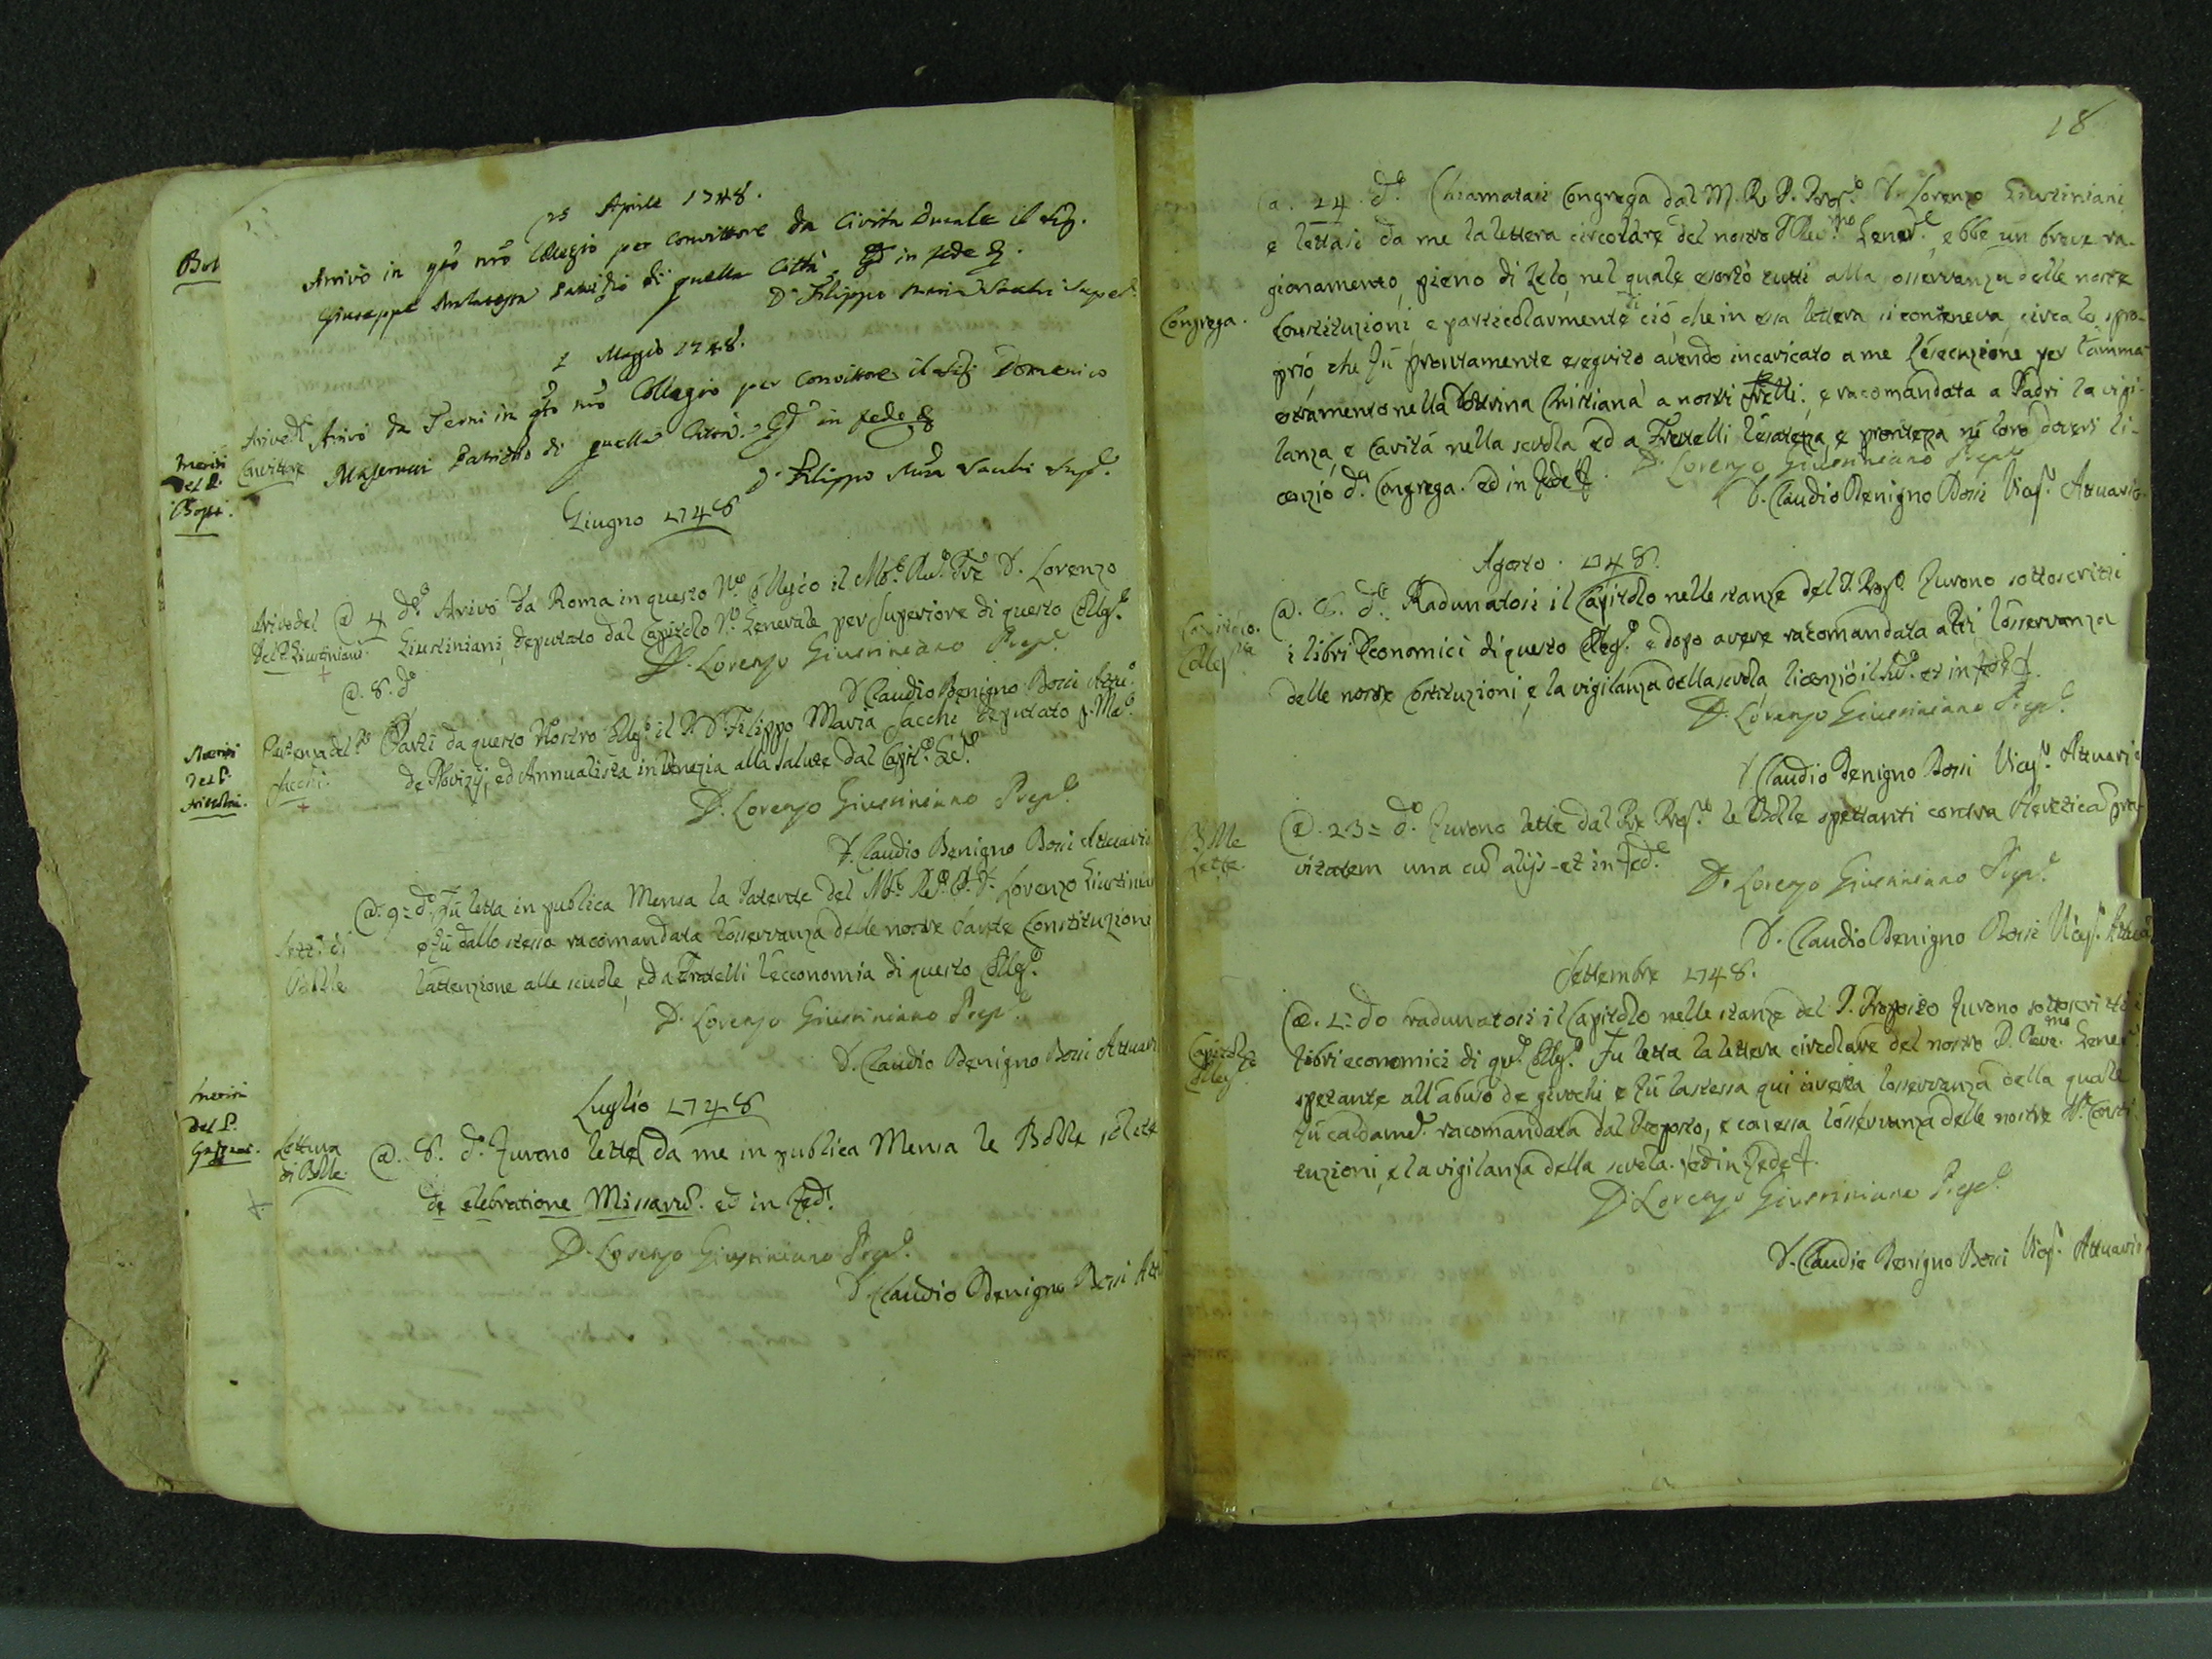 25 Aprile 1748.
Arrivò in qto nro Collegio per convittore da Civita Ducale il Sig.
Giuseppe patrizio di quella Città. in fede
D. Filippo Maria Sachi Super.e
1 Maggio 1748.
Arivo del Convittore
Arivò da Terni in qto nro Collegio per Convittore il Sig. Domenico
Maserucci Patritio di quella Città. in fede
D. Filippo Mia Sachi Sup.e
Giugno 1748
Arivo del
del P. Giustiniani.
@ 4 d.o Arivò da Roma in questo N.o Collegio il M.o Rev.o Pre D. Lorenzo
Giustiniani, deputato dal Capitolo N.o Generale per Superiore di questo Collg.o
D. Lorenzo Giustiniano Prep.o
D Claudio Benigno Bossi Attu.o
@. 8. d.o
Partenza del P.
Sacchi.
Partì da questo Nostro Collg.o il P D Filippo Maria Sacchi deputato p. Mae.o
de Novizij, ed Annualista in Venezia alla Salute dal Capit.o Ge.le
D. Lorenzo Giustiniano Prep.o
D. Claudio Benigno Bossi Attuario
Lett.a di
Bolle
@. 9 = d.o Fù letta in publica Mensa la Patente del M.o Re.o P. D. Lorenzo Giustinia
e fù dallo stesso racomandata l'osservanza delle nostre Sante Constituzioni
l'attenzione alle scuole, ed a Fratelli l'economia di questo Collg.o
D. Lorenzo Giustiniano Prep.o
D. Claudio Benigno Bossi Attuar
Luglio 1748
Lettura
di Bolle
@. 8. d.o Furono lette da me in publica Mensa le Bolle solite
de celebratione Missarũ. ed in fed.e
D. Lorenzo Giustiniano Prep.o
D. Claudio Benigno Bossi Att
Bol
Meriti
del P.
Bossi.
Meriti
del P.
Meriti
del P.
18
Congrega.
a. 24. d.o Chiamatasi Congrega dal M. R. P. Prep.o D. Lorenzo Giustiniani
e lettasi da me la lettera circolare del nostro P Rev.mo Gener.le, ebbe un breve ra-
gionamento, pieno di zelo, nel quale esortò tutti alla osservanza delle nostre
Constituzioni e particolarmente di ciò che in essa lettera si conteneva, circa lo spro-
prio che fù prontamente eseguito avendo incaricato a me l'esecuzione per l'amma-
estramento nella Dottrina Christiana a nostri Frelli: e racomandata a Padri la vigi-
lanza, e carità nella scuola ed a Fratelli l'esatezza, e prontezza nè loro doveri li-
cenziò d.a Congrega. ed in fede
D. Lorenzo Giustiniano Prep.o
D. Claudio Benigno Bossi Vicep.o Attuario
Agosto. 1748.
Capitolo
Colleg.le
@. 8. d.o Radunatosi il Capitolo nelle stanze del P. Prep.o furono sottoscritti
i libri Economici di questo Colleg.o e dopo avere racomandata a tti l'osservanza
delle nostre Constituzioni, e la vigilanza della scuola licenziò il Sud.o et in fede
D. Lorenzo Giustiniano Prep.o
D Claudio Benigno Bossi Vicep.o Attuario
Bolle
Lette.
@. 23 = d.o Furono lette dal Pre Prep.o le Bolle spettanti contra Hereticã pra-
vitatem una cũ alijs - et in fed.e
D. Lorenzo Giustiniano Prep.o
D. Claudio Benigno Bossi Vicep.o Attua
Settembre 1748.
Capitolo
Colleg.le
@. 1: do radunatosi il Capitolo nelle stanze del P. Preposito furono sottoscritti i
libri economici di qu.o Collg.o Fu letta la lettera circolare del nostro P. Reve.mo Gener.
spetante all'abuso de giuochi, e fù la stessa qui inserta l'osservanza della quale
fù caldame.e racomandata dal Proposto, e con essa l'osservanza delle nostre S.te Consti
tuzioni, e la vigilanza della scuola. ed in fede
D. Lorenzo Giustiniano Prep.o
D. Claudio Benigno Bossi Vicep.o Attuario